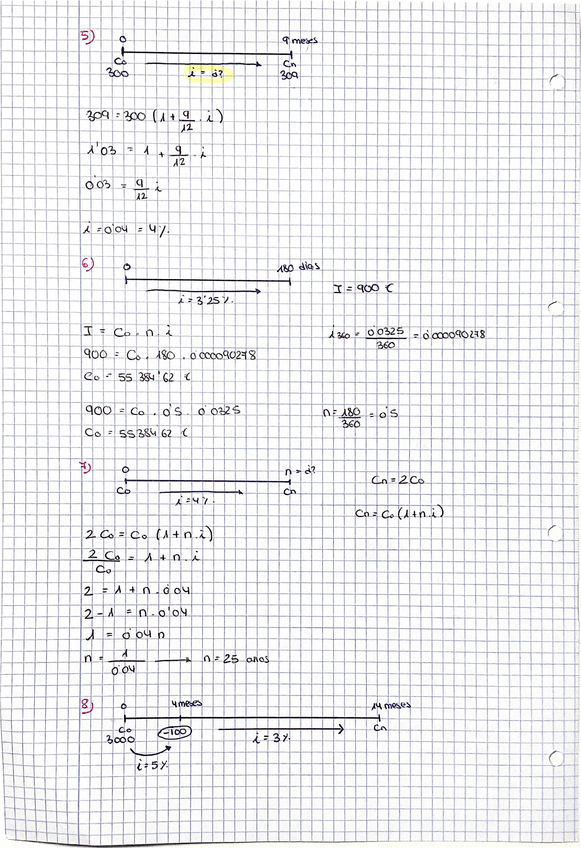 5)
0 9 meses
Co Cn
300 i = ¿? 309
309 = 300 (1 + 9/12 . i)
1'03 = 1 + 9/12 . i
0'03 = 9/12 i
i = 0'04 = 4%.
6)
0 180 dias
I = 900 €
i = 3'25%.
I = Co . n . i
i360 = 0'0325/360 = 0'000090278
900 = Co . 180 . 0'000090278
Co = 55 384'62 €
900 = Co . 0'5 . 0'0325
n = 180/360 = 0'5
Co = 55384'62 €
7)
0 n = ¿?
Co i = 4% Cn
Cn = 2Co
Cn = Co (1+n.i)
2 Co = Co (1+n.i)
2 Co/Co = 1 + n . i
2 = 1 + n . 0'04
2 - 1 = n . 0'04
1 = 0'04 n
n = 1/0'04 → n = 25 anos
8)
0 4 meses 14 meses
Co Cn
3000 -100 i = 3%.
i = 5%